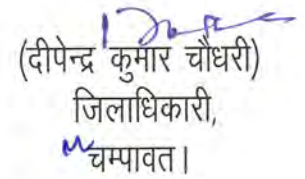 (दीपेन्द्र कुमार चौधरी)
जिलाधिकारी,
चम्पावत।